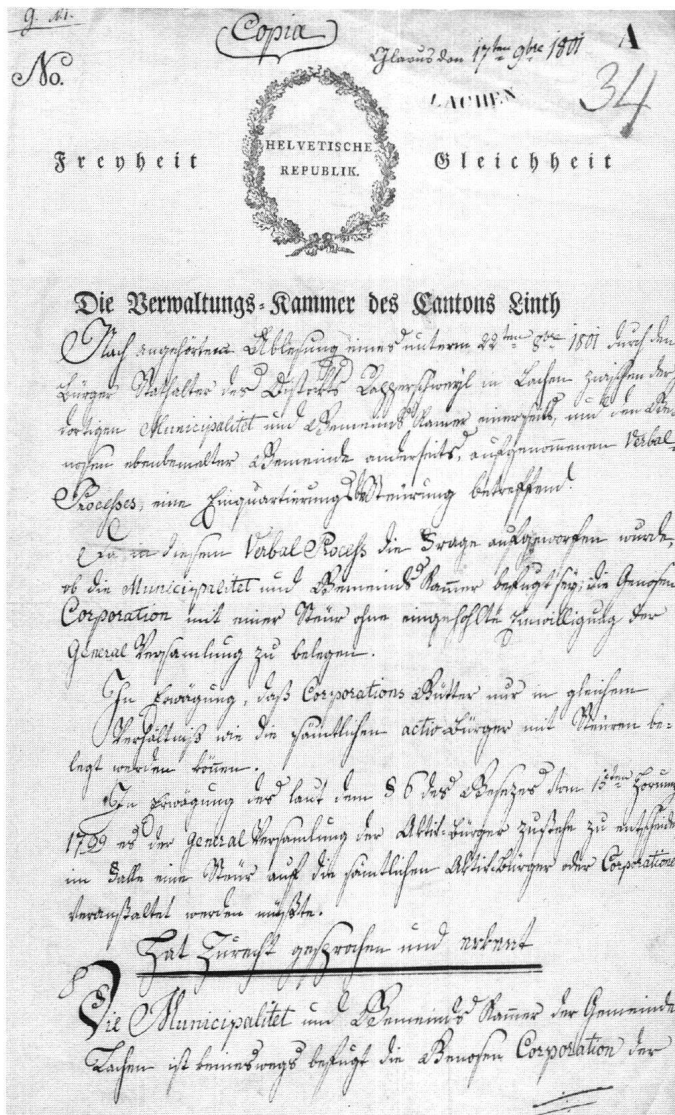 9. N1.
Copia
Glarus den 17ten 9bre 1801
A
No.
LACHEN
34
Freyheit
HELVETISCHE
REPUBLIK.
Gleichheit
Die Verwaltungs-Kammer des Cantons Linth
Nach angehörten Ablesung eines unterm 22ten 8bre 1801 durch den
Bürger Stathalter des Distrikts Rapperschweyl in Lachen zwischen der
dortigen Municipalitet und Gemeinds Kamer einerseits, und den Ge-
nosen ebenbemelter Gemeinde anderseits, aufgenommenen Verbal-
Processes, eine Einquartierungs Steürung betreffend.
Da in diesem Verbal Process die Frage aufgeworfen wurde,
ob die Municipalitet und Gemeinds Kammer befugt sey, die Genosen
Corporation mit einer Steür ohne eingehohlte Einwilligung der
General Versamlung zu belegen.
In Erwägung, daß Corporations Gütter nur in gleichem
Verhältniß wie die sämtlichen activ Bürger mit Steüren be-
legt werden könen.
In Erwägung das laut dem § 6 des Gesezes vom 13ten Hornung
1799 es der General Versamlung der Aktiv-Bürger zustehe zu entscheiden
im Falle eine Steür auf die sämtlichen Aktiv-bürger oder Corporationen
veranstaltet werden müßte.
Hat Zurecht gesprochen und erkent
Die Municipalitet und Gemeinds Kammer der Gemeinde
Lachen ist keineswegs befugt die Genosen Corporation der